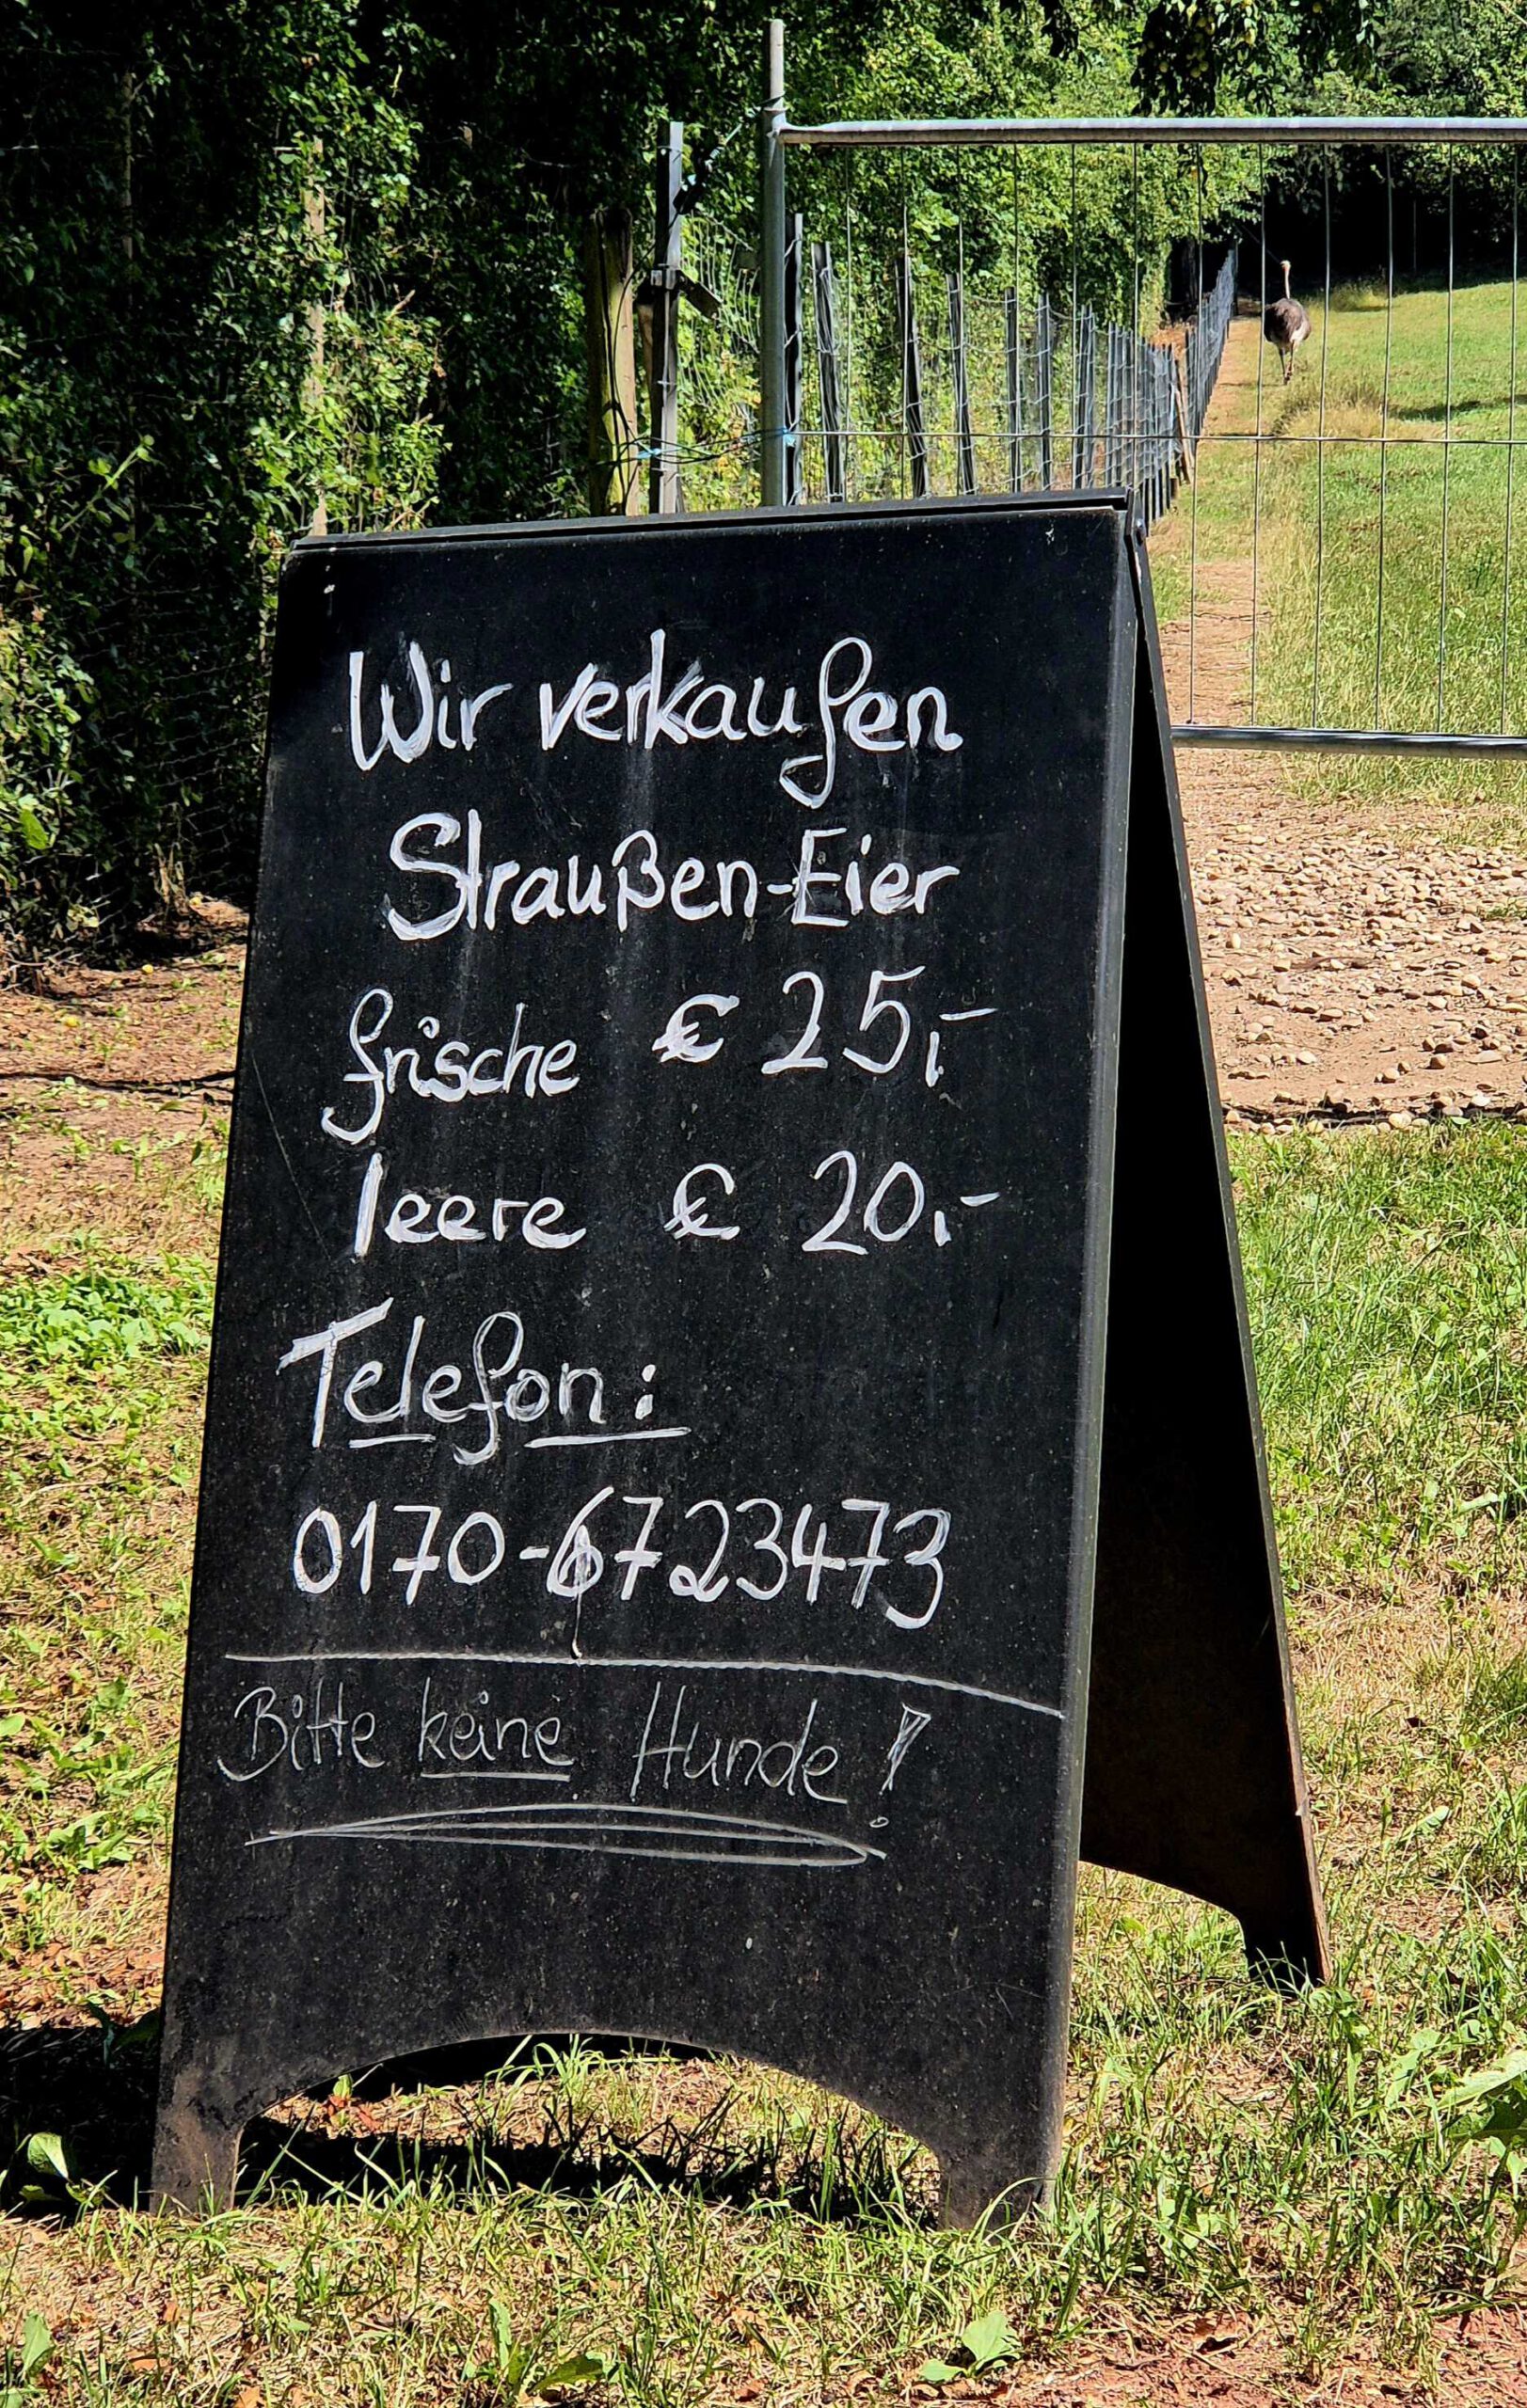 Wir verkaufen
Straußen-Eier
frische € 25,-
leere € 20,-
Telefon:
0170-6723473
Bitte keine Hunde!